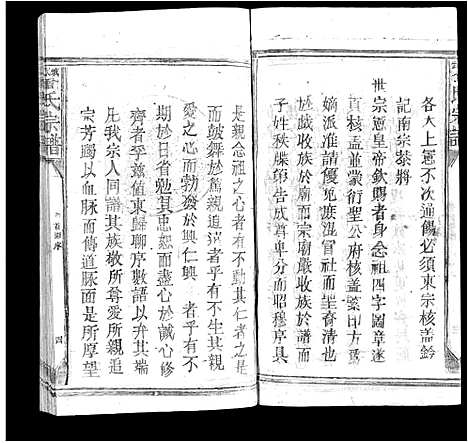 各大上憲不次通飭必須東宗核蓋鈐
記南宗恭將
世宗憲皇帝欽賜者身念祖四字圖章遂
頁核蓋並蒙衍聖公府核蓋纂印方爲
嫡派准譜復禁混冒社而塋裔清也
於戲收族於宗廟嚴收族於譜而
子姓秩牒第告成尊卑分而昭穆序具
是親念祖之心者有不興其仁者乎
而鼓舞於篤親追遠者乎有不生其
愛之心而勃發於興仁興 者乎有不
期於日省勉其忠恕而盡心於誠心修
齊者乎茲值東歸聊序數語以弁其端
凡我宗人同譜其族敬所尊愛所親追
宗芳躅以血脈而傳道脈面是所厚望
氏宗譜
序
四
氏宗譜